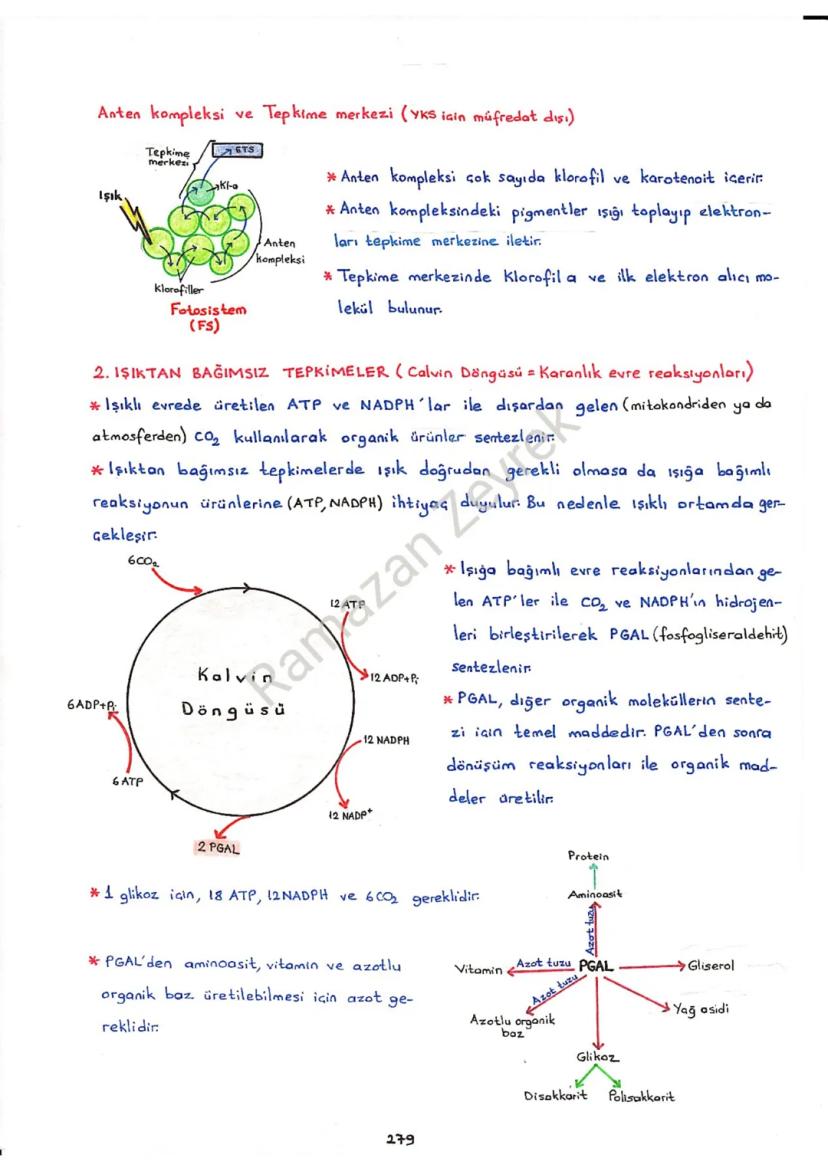 Anten kompleksi ve Tepkime merkezi (YKS için müfredat dışı)
Tepkime merkezi
ETS
Kl-a
Işık
Anten kompleksi
Klorofiller
Fotosistem (FS)
* Anten kompleksi çok sayıda klorofil ve karotenoit içerir.
* Anten kompleksindeki pigmentler ışığı toplayıp elektron-
ları tepkime merkezine iletir.
* Tepkime merkezinde Klorofil a ve ilk elektron alıcı mo-
lekül bulunur.
2. IŞIKTAN BAĞIMSIZ TEPKİMELER (Calvin Döngüsü = Karanlık evre reaksiyonları)
* Işıklı evrede üretilen ATP ve NADPH'lar ile dışardan gelen (mitokondriden ya da
atmosferden) CO₂ kullanılarak organik ürünler sentezlenir.
* Işıktan bağımsız tepkimelerde ışık doğrudan gerekli olmasa da ışığa bağımlı
reaksiyonun ürünlerine (ATP, NADPH) ihtiyaç duyulur. Bu nedenle ışıklı ortamda ger-
çekleşir.
6CO₂
12 ATP
12 ADP+Pi
Kalvin
Döngüsü
6ADP+Pi
12 NADPH
6 ATP
12 NADP⁺
2 PGAL
* Işığa bağımlı evre reaksiyonlarından ge-
len ATP'ler ile CO₂ ve NADPH'ın hidrojen-
leri birleştirilerek PGAL (fosfogliseraldehit)
sentezlenir.
* PGAL, diğer organik moleküllerin sente-
zi için temel maddedir. PGAL'den sonra
dönüşüm reaksiyonları ile organik mad-
deler üretilir.
* 1 glikoz için, 18 ATP, 12NADPH ve 6CO₂ gereklidir.
* PGAL'den aminoasit, vitamin ve azotlu
organik baz üretilebilmesi için azot ge-
reklidir.
Protein
Aminoasit
Azot tuzu
Vitamin
Azot tuzu
PGAL
Gliserol
Azot tuzu
Yağ asidi
Azotlu organik
baz
Glikoz
Disakkarit
Polisakkarit
Ramazan Zeyrek
279